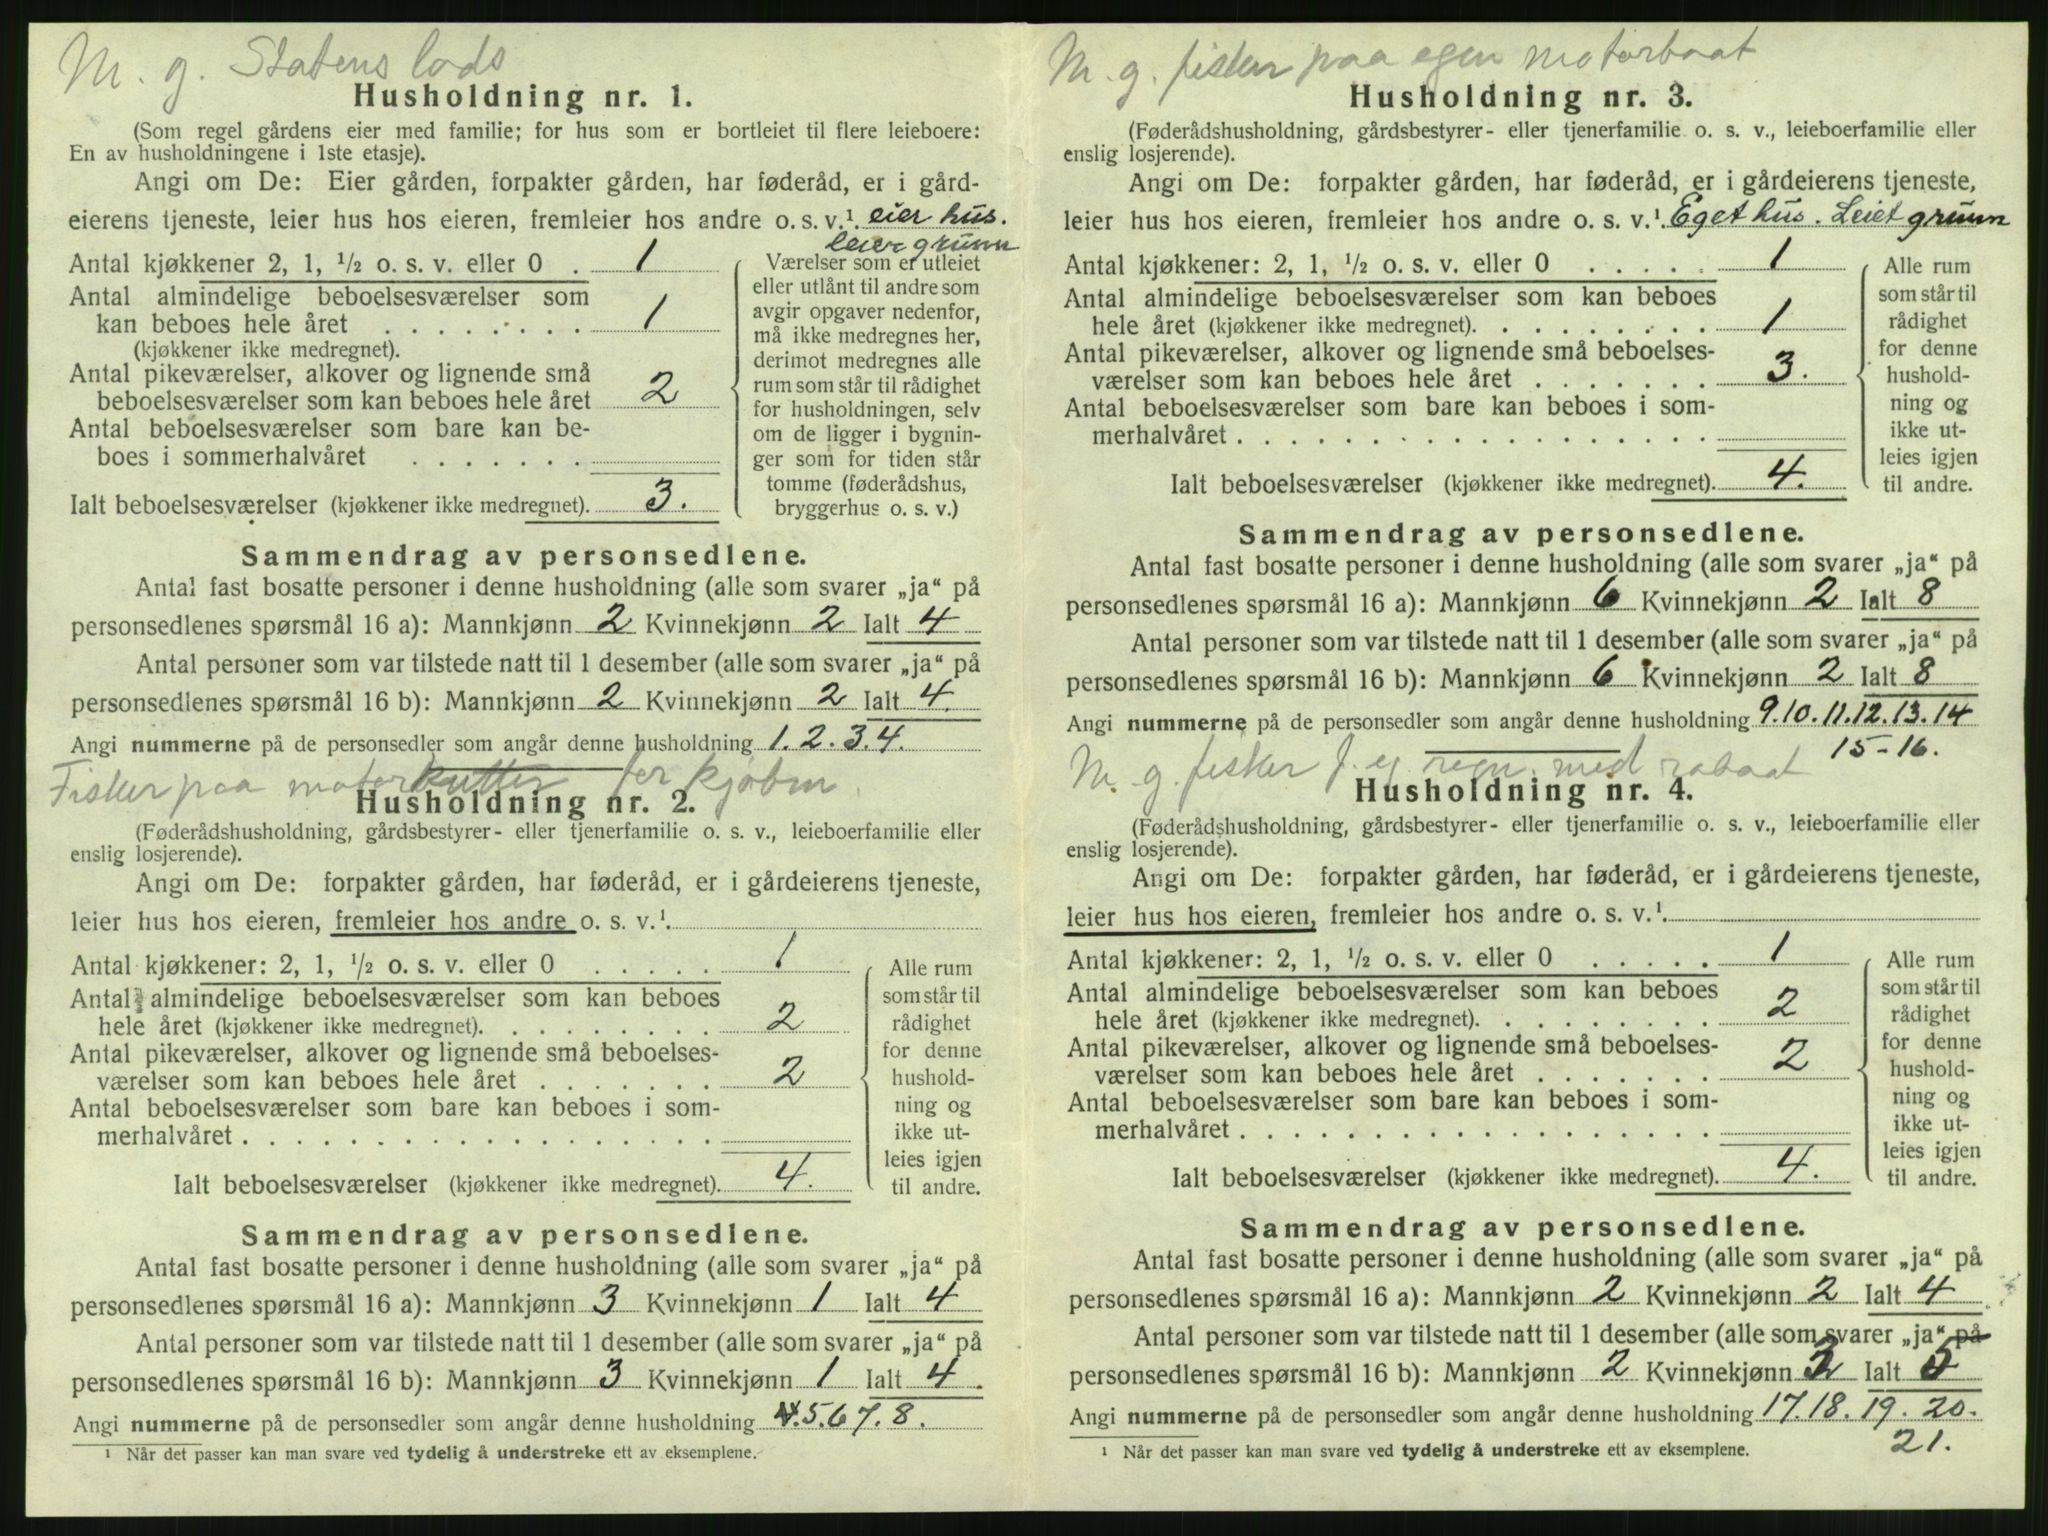 M. g. Statens lods
Husholdning nr. 1.
(Som regel gårdens eier med familie; for hus som er bortleiet til flere leieboere:
En av husholdningene i 1ste etasje).
Angi om De: Eier gården, forpakter gården, har føderåd, er i gård-
eierens tjeneste, leier hus hos eieren, fremleier hos andre o. s. v.¹. eier hus.
leier grunn
Antal kjøkkener 2, 1, ½ o. s. v. eller 0 . 1
Antal almindelige beboelsesværelser som
kan beboes hele året . . . . . . . . 1
(kjøkkener ikke medregnet).
Antal pikeværelser, alkover og lignende små
beboelsesværelser som kan beboes hele året 2
Antal beboelsesværelser som bare kan be-
boes i sommerhalvåret . . . . . . .
Ialt beboelsesværelser (kjøkkener ikke medregnet). 3.
Værelser som er utleiet
eller utlånt til andre som
avgir opgaver nedenfor,
må ikke medregnes her,
derimot medregnes alle
rum som står til rådighet
for husholdningen, selv
om de ligger i bygnin-
ger som for tiden står
tomme (føderådshus,
bryggerhus o. s. v.)
Sammendrag av personsedlene.
Antal fast bosatte personer i denne husholdning (alle som svarer „ja“ på
personsedlenes spørsmål 16 a): Mannkjønn 2 Kvinnekjønn 2 Ialt 4
Antal personer som var tilstede natt til 1 desember (alle som svarer „ja“ på
personsedlenes spørsmål 16 b): Mannkjønn 2 Kvinnekjønn 2 Ialt 4.
Angi nummerne på de personsedler som angår denne husholdning 1. 2. 3. 4.
Fisker paa motorkutter for kjøbm.
Husholdning nr. 2.
(Føderådshusholdning, gårdsbestyrer- eller tjenerfamilie o. s. v., leieboerfamilie eller
enslig losjerende).
Angi om De: forpakter gården, har føderåd, er i gårdeierens tjeneste,
leier hus hos eieren, fremleier hos andre o. s. v.¹.
Antal kjøkkener: 2, 1, ½ o. s. v. eller 0 . . . . . 1
Antal almindelige beboelsesværelser som kan beboes
hele året (kjøkkener ikke medregnet). . . . . . . . . 2
Antal pikeværelser, alkover og lignende små beboelses-
værelser som kan beboes hele året . . . . . . . 2
Antal beboelsesværelser som bare kan beboes i som-
merhalvåret . . . . . . . . . . . . . . . . . .
Ialt beboelsesværelser (kjøkkener ikke medregnet). 4.
Alle rum
som står til
rådighet
for denne
hushold-
ning og
ikke ut-
leies igjen
til andre.
Sammendrag av personsedlene.
Antal fast bosatte personer i denne husholdning (alle som svarer „ja“ på
personsedlenes spørsmål 16 a): Mannkjønn 3 Kvinnekjønn 1 Ialt 4
Antal personer som var tilstede natt til 1 desember (alle som svarer „ja“ på
personsedlenes spørsmål 16 b): Mannkjønn 3 Kvinnekjønn 1 Ialt 4.
Angi nummerne på de personsedler som angår denne husholdning 5. 6 7. 8.
¹ Når det passer kan man svare ved tydelig å understreke ett av eksemplene.
M. g. fisker paa egen motorbaat
Husholdning nr. 3.
(Føderådshusholdning, gårdsbestyrer- eller tjenerfamilie o. s. v., leieboerfamilie eller
enslig losjerende).
Angi om De: forpakter gården, har føderåd, er i gårdeierens tjeneste,
leier hus hos eieren, fremleier hos andre o. s. v.¹. Eget hus. Leiet grunn
Antal kjøkkener: 2, 1, ½ o. s. v. eller 0 . . . . . 1
Antal almindelige beboelsesværelser som kan beboes
hele året (kjøkkener ikke medregnet). . . . . . . . . 1
Antal pikeværelser, alkover og lignende små beboelses-
værelser som kan beboes hele året . . . . . . . 3.
Antal beboelsesværelser som bare kan beboes i som-
merhalvåret . . . . . . . . . . . . . . . . . .
Ialt beboelsesværelser (kjøkkener ikke medregnet). 4.
Alle rum
som står til
rådighet
for denne
hushold-
ning og
ikke ut-
leies igjen
til andre.
Sammendrag av personsedlene.
Antal fast bosatte personer i denne husholdning (alle som svarer „ja“ på
personsedlenes spørsmål 16 a): Mannkjønn 6 Kvinnekjønn 2 Ialt 8
Antal personer som var tilstede natt til 1 desember (alle som svarer „ja“ på
personsedlenes spørsmål 16 b): Mannkjønn 6 Kvinnekjønn 2 Ialt 8
Angi nummerne på de personsedler som angår denne husholdning 9. 10. 11. 12. 13. 14
15-16.
M. g. fisker f. eg. regn. med robaat
Husholdning nr. 4.
(Føderådshusholdning, gårdsbestyrer- eller tjenerfamilie o. s. v., leieboerfamilie eller
enslig losjerende).
Angi om De: forpakter gården, har føderåd, er i gårdeierens tjeneste,
leier hus hos eieren, fremleier hos andre o. s. v.¹.
Antal kjøkkener: 2, 1, ½ o. s. v. eller 0 . . . . . 1
Antal almindelige beboelsesværelser som kan beboes
hele året (kjøkkener ikke medregnet). . . . . . . . . 2
Antal pikeværelser, alkover og lignende små beboelses-
værelser som kan beboes hele året . . . . . . . 2
Antal beboelsesværelser som bare kan beboes i som-
merhalvåret . . . . . . . . . . . . . . . . . .
Ialt beboelsesværelser (kjøkkener ikke medregnet). 4.
Alle rum
som står til
rådighet
for denne
hushold-
ning og
ikke ut-
leies igjen
til andre.
Sammendrag av personsedlene.
Antal fast bosatte personer i denne husholdning (alle som svarer „ja“ på
personsedlenes spørsmål 16 a): Mannkjønn 2 Kvinnekjønn 2 Ialt 4
Antal personer som var tilstede natt til 1 desember (alle som svarer „ja“ på
personsedlenes spørsmål 16 b): Mannkjønn 2 Kvinnekjønn 3 Ialt 5
Angi nummerne på de personsedler som angår denne husholdning 17. 18. 19. 20.
21.
¹ Når det passer kan man svare ved tydelig å understreke ett av eksemplene.